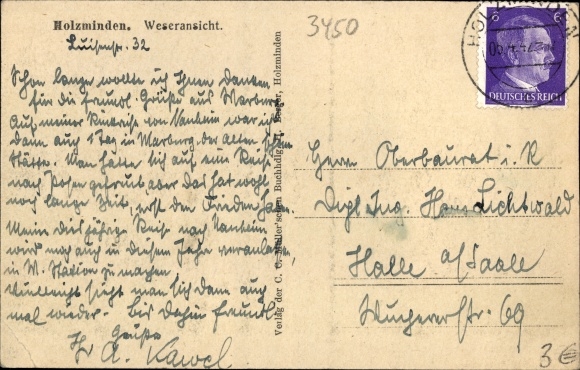 Holzminden. Weseransicht.
Luisenstr. 32
3450
Schon lange wollte ich Ihnen danken
für die freundl. Grüße aus Marburg.
Auf meiner Rückreise von Nauheim war ich
dann auch 1 Tag in Marburg, der alten schönen
Stätte. Man hätte sich auf eine Reise
nach Posen gefreut aber das hat wohl
noch lange Zeit, erst den Frieden haben.
Meine diesjährige Reise nach Nauheim
wird mich auch in diesem Jahre veranlassen
in M. Station zu machen
Vielleicht sieht man sich dann auch
mal wieder. Bis dahin freundl.
Grüße
Ihr A.
Verlag der C. C. Müller'schen Buchhdlg. Holzminden
HOLZMINDEN
6 6
DEUTSCHES REICH
Herrn Oberbaurat i. R
Dipl Ing. Hans Lichtwald
Halle a/Saale
Wuchererstr. 69
3 €